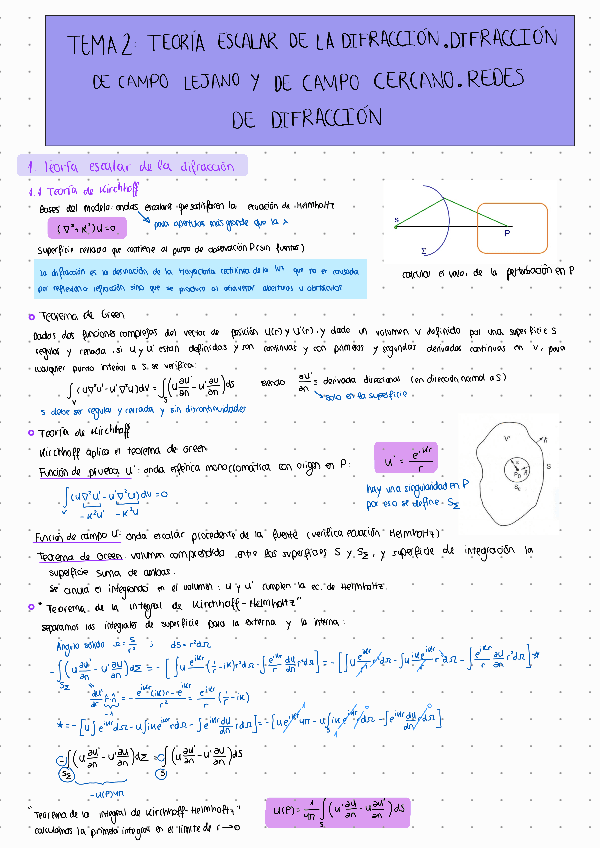 TEMA 2: TEORÍA ESCALAR DE LA DIFRACCIÓN. DIFRACCIÓN
DE CAMPO LEJANO Y DE CAMPO CERCANO. REDES
DE DIFRACCIÓN
1. Teoría escalar de la difracción
1.1 Teoría de Kirchhoff
Bases del modelo: ondas escalares que satisfacen la ecuación de Helmholtz
(∇²+K²)U=0
para aperturas más grande que la λ
Superficie cerrada que contiene al punto de observación P (sin fuentes)
S
P
Σ
calcular el valor de la perturbación en P
La difracción es la desviación de la trayectoria rectilínea de la luz que no es causada
por reflexión o refracción sino que se produce al atravesar aberturas u obstáculos
Teorema de Green
Dadas dos funciones complejas del vector de posición U(r) y U'(r), y dado un volumen V definido por una superficie S
regular y cerrada, si U y U' están definidas y son continuas y con primeras y segundas derivadas continuas en V, para
cualquier punto interior a S, se verifica:
∫_V (U∇²U' - U'∇²U) dV = ∫_S (U ∂U'/∂n - U' ∂U/∂n) dS siendo ∂U'/∂n = derivada direccional (en dirección normal a S)
solo en la superficie
S debe ser regular y cerrada y sin discontinuidades
Teoría de Kirchhoff
Kirchhoff aplica el teorema de Green
Función de prueba U': onda esférica monocromática con origen en P:
U' = e^{iKr}/r
∫_V (U∇²U' - U'∇²U) dV = 0
-K²U' -K²U
hay una singularidad en P
por eso se define S_Σ
V
S
Función de campo U: onda escalar procedente de la fuente (verifica ecuación Helmholtz)
Teorema de Green: volumen comprendido entre las superficies S y S_Σ, y superficie de integración la
superficie suma de ambas.
Se anula el integrando en el volumen: U y U' cumplen la ec. de Helmholtz.
"Teorema de la integral de Kirchhoff-Helmholtz"
separamos las integrales de superficie para la externa y la interna:
Ángulo sólido Ω = S/r² ; dS = r²dΩ
-U(P)4π
"Teorema de la integral de Kirchhoff-Helmholtz"
U(P) = 1/4π ∫_S (U' ∂U/∂n - U ∂U'/∂n) dS
calculamos la primera integral en el límite de r→0